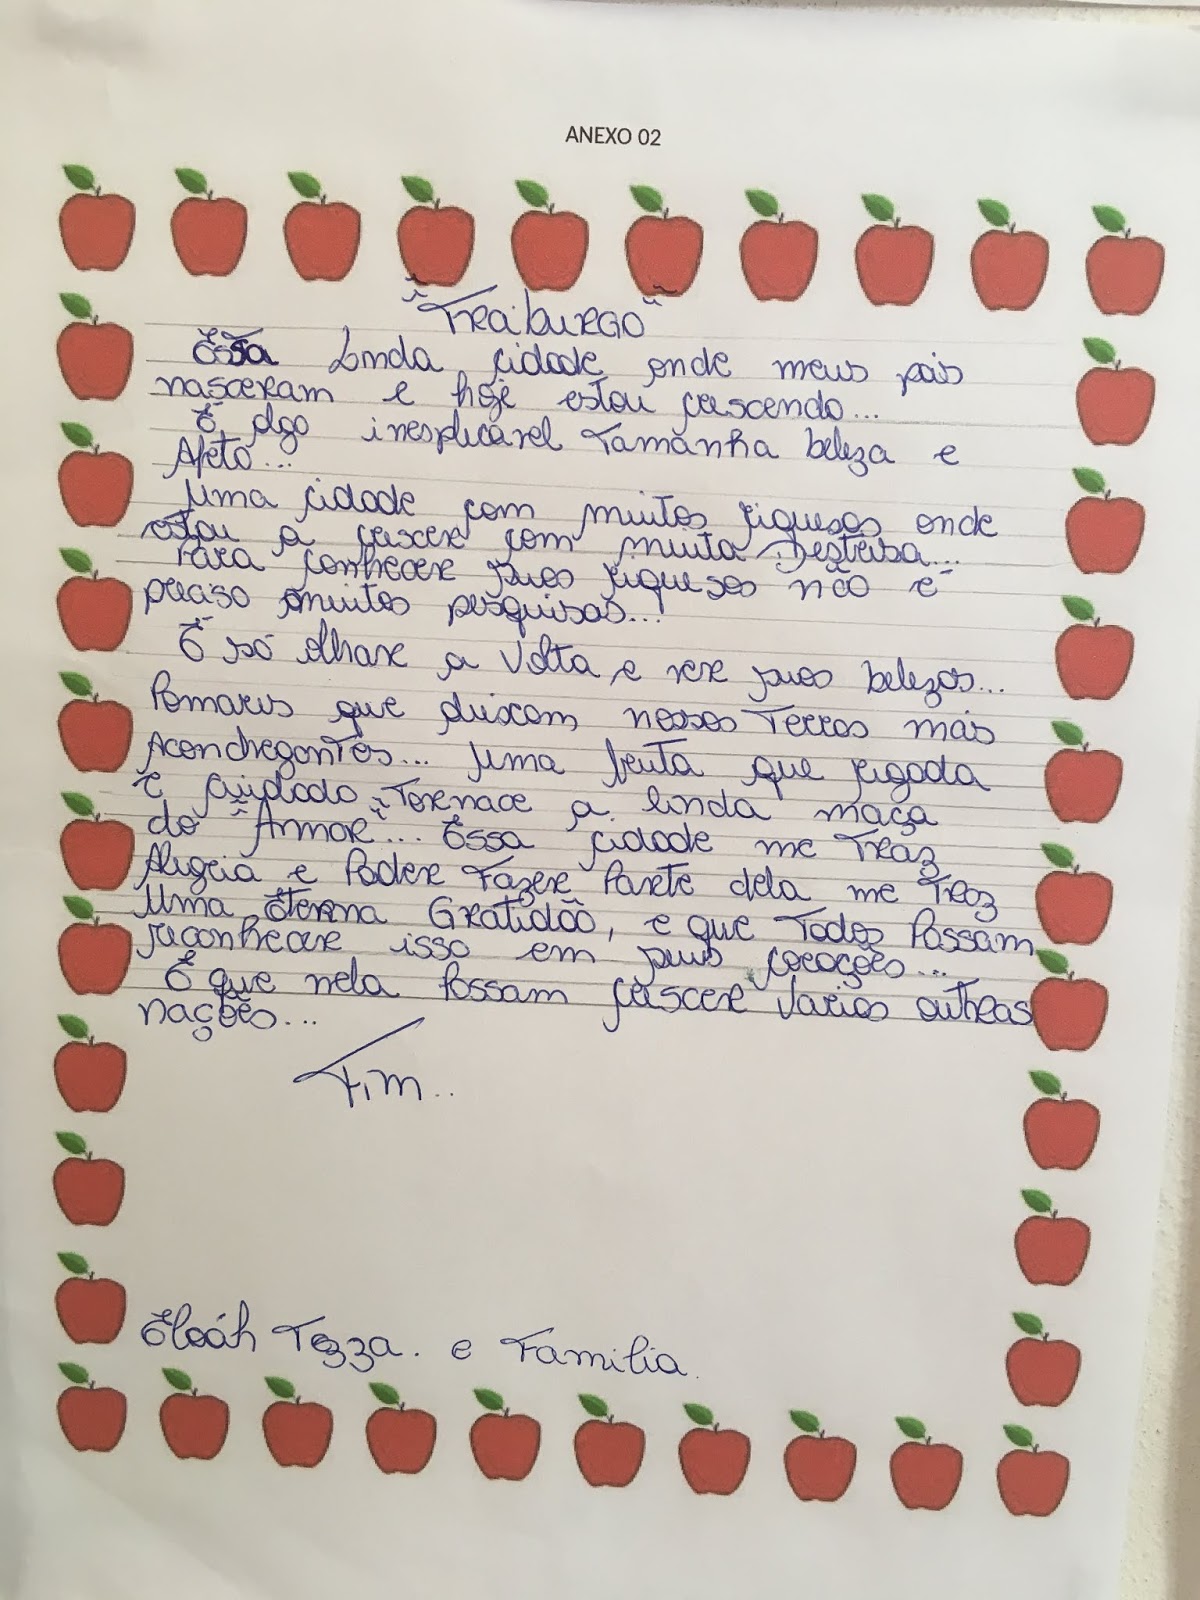 ANEXO 02
"Fraiburgo"
Essa Linda cidade onde meus pais
nasceram e hoje estou crescendo...
É algo inesplicável Tamanha beleza e
Afeto...
Uma cidade com muitas riquesas onde
estou a crescer com muita Destresa...
Para conhecer suas riquesas não é
preciso muitas pesquisas...
É só olhar a Volta e ver suas belezas...
Pomares que deixam nossas Terras mais
Aconchegantes... Uma fruta que regada
e cuidada, Tornace a linda maça
do "Amor"... Essa cidade me Traz
Alegria e Poder Fazer Parte dela me Traz
Uma Eterna Gratidão, e que Todos Possam
reconhecer isso em seus corações...
E que nela Possam crescer Varias outras
nações...
Fim..
Eloáh Tozza. e Familia.